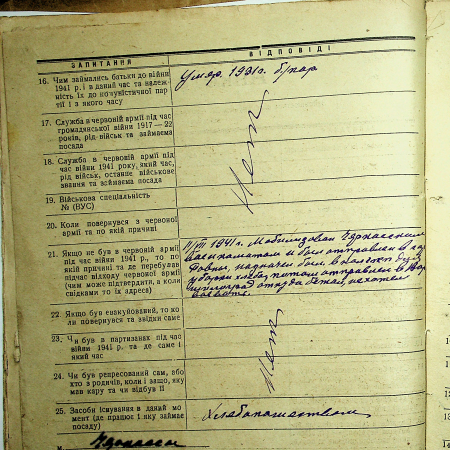 ЗАПИТАННЯ
ВІДПОВІДІ
16. Чим займались батьки до війни
1941 р. і в даний час та належ-
ність їх до комуністичної пар-
тії і з якого часу
Умер. 1931 г.
17. Служба в червоній армії під час
громадянської війни 1917—22
років, рід військ та займаєма
посада
18. Служба в червоній армії під
час війни 1941 року, який час,
рід військ, останнє військове
звання та займаєма посада
Нет
19. Військова спеціальність
№ (ВУС)
20. Коли повернувся з червоної
армії та по якій причині
21. Якщо не був в червоній армії
під час війни 1941 р., то по
якій причині та де перебував
підчас відходу червоної армії
(чим може підтвердити, в коли
свідками то їх адреса)
1941 г. Мобилизован Черкасским
военкоматом и был отправлен в
назначен был в колхоз для
уборки хлеба, потом отправлен в
откуда бежал, не хотел
воевать.
22. Якщо був евакуйований, то ко-
ли повернувся та звідки саме
23. Чи був в партизанах під час
війни 1941 р. та де саме і
який час
Нет
24. Чи був репресований сам, або
хто з родичів, коли і защо, яку
мав кару та чи відбув її
25. Засоби існування в даний мо-
мент (де працює і яку займає
посаду)
Хлебопашеством